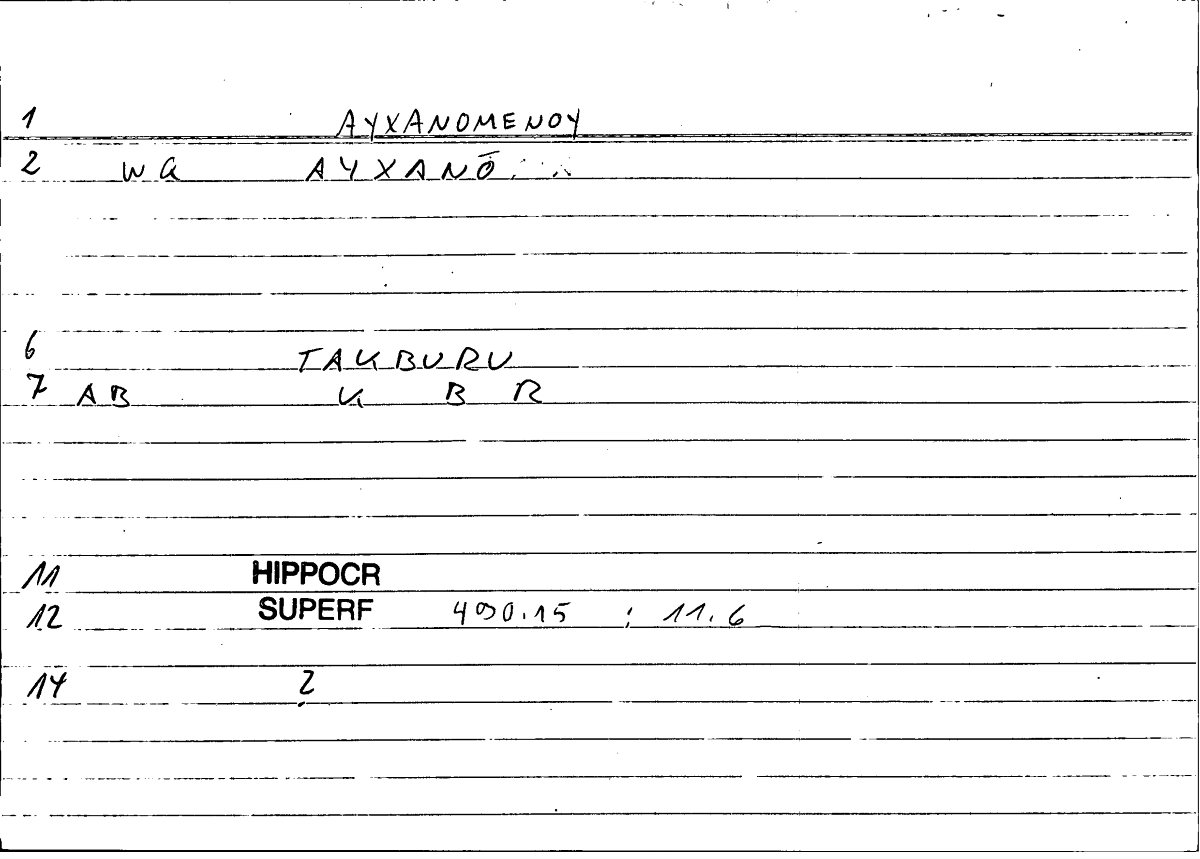 1 AYXANOMENOY
2 WG AYXANŌ
6 TAKBURU
7 AB K B R
11 HIPPOCR
12 SUPERF 490.15 ; 11.6
14 ?